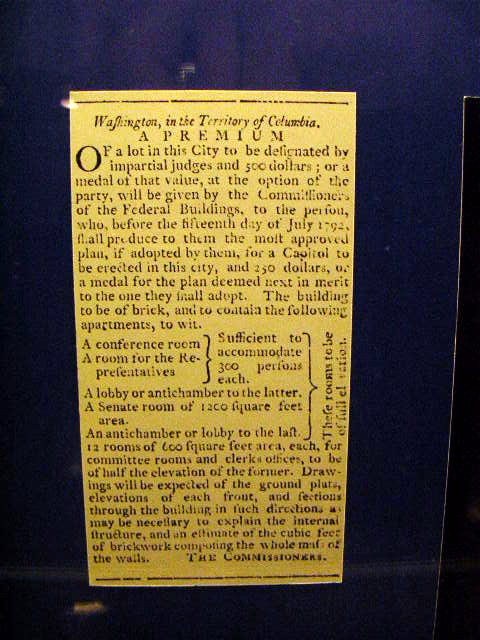 Waſhington, in the Territory of Columbia.
A PREMIUM
OF a lot in this City to be deſignated by
impartial judges and 500 dollars; or a
medal of that value, at the option of the
party, will be given by the Commiſſioners
of the Federal Buildings, to the perſon,
who, before the fifteenth day of July 1792,
ſhall produce to them the moſt approved
plan, if adopted by them, for a Capitol to
be erected in this city, and 250 dollars, or
a medal for the plan deemed next in merit
to the one they ſhall adopt. The building
to be of brick, and to contain the following
apartments, to wit.
A conference room
A room for the Re-
preſentatives
Sufficient to
accommodate
300 perſons
each.
A lobby or antichamber to the latter.
A Senate room of 1200 ſquare feet
area.
An antichamber or lobby to the laſt.
Theſe rooms to be
of full elevation.
12 rooms of 600 ſquare feet area, each, for
committee rooms and clerks offices, to be
of half the elevation of the former. Draw-
ings will be expected of the ground plats,
elevations of each front, and ſections
through the building in ſuch directions as
may be neceſſary to explain the internal
ſtructure, and an eſtimate of the cubic feet
of brickwork compoſing the whole maſs of
the walls. THE COMMISSIONERS.